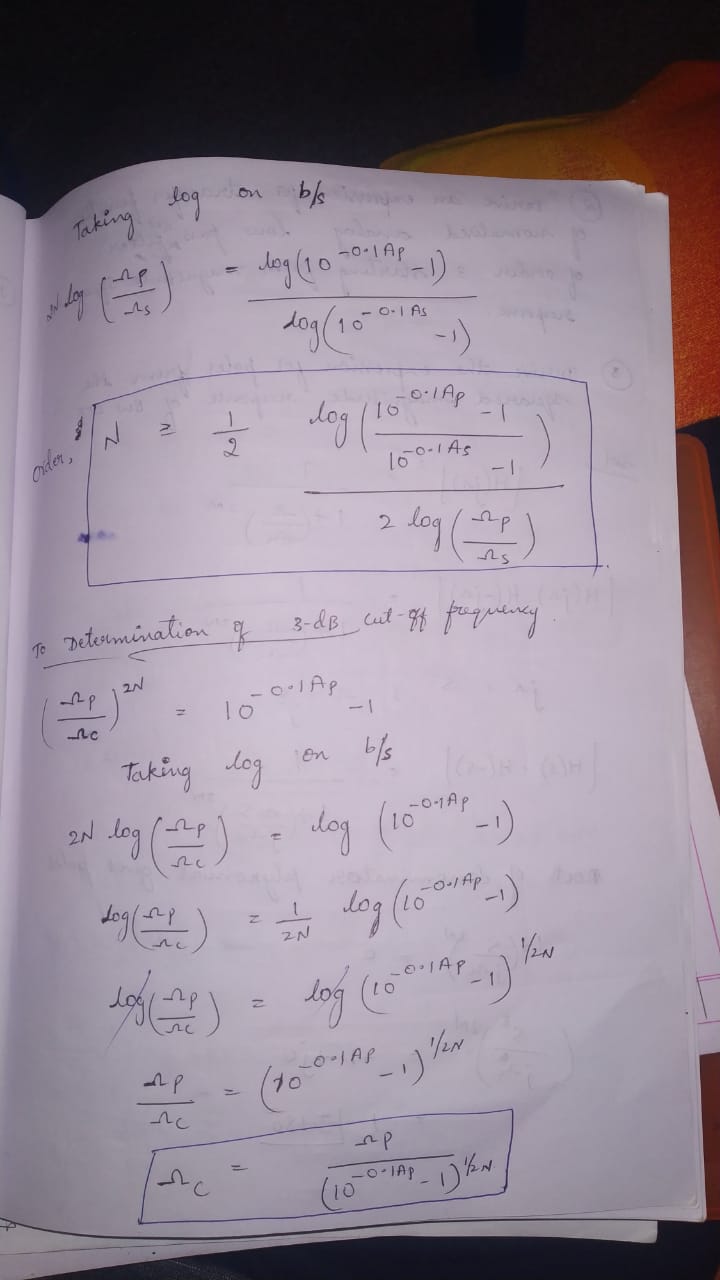 Taking log on b/s
2N log (Ωp/Ωs) = log(10^-0.1Ap -1) / log(10^-0.1As -1)
order, N ≥ 1/2 log (10^-0.1Ap -1 / 10^-0.1As -1) / 2 log (Ωp/Ωs)
To Determination of 3-dB cut-off frequency.
(Ωp/Ωc)^2N = 10^-0.1Ap -1
Taking log on b/s
2N log (Ωp/Ωc) = log (10^-0.1Ap -1)
log (Ωp/Ωc) = 1/2N log (10^-0.1Ap -1)
log (Ωp/Ωc) = log (10^-0.1Ap -1)^1/2N
Ωp/Ωc = (10^-0.1Ap -1)^1/2N
Ωc = Ωp / (10^-0.1Ap -1)^1/2N